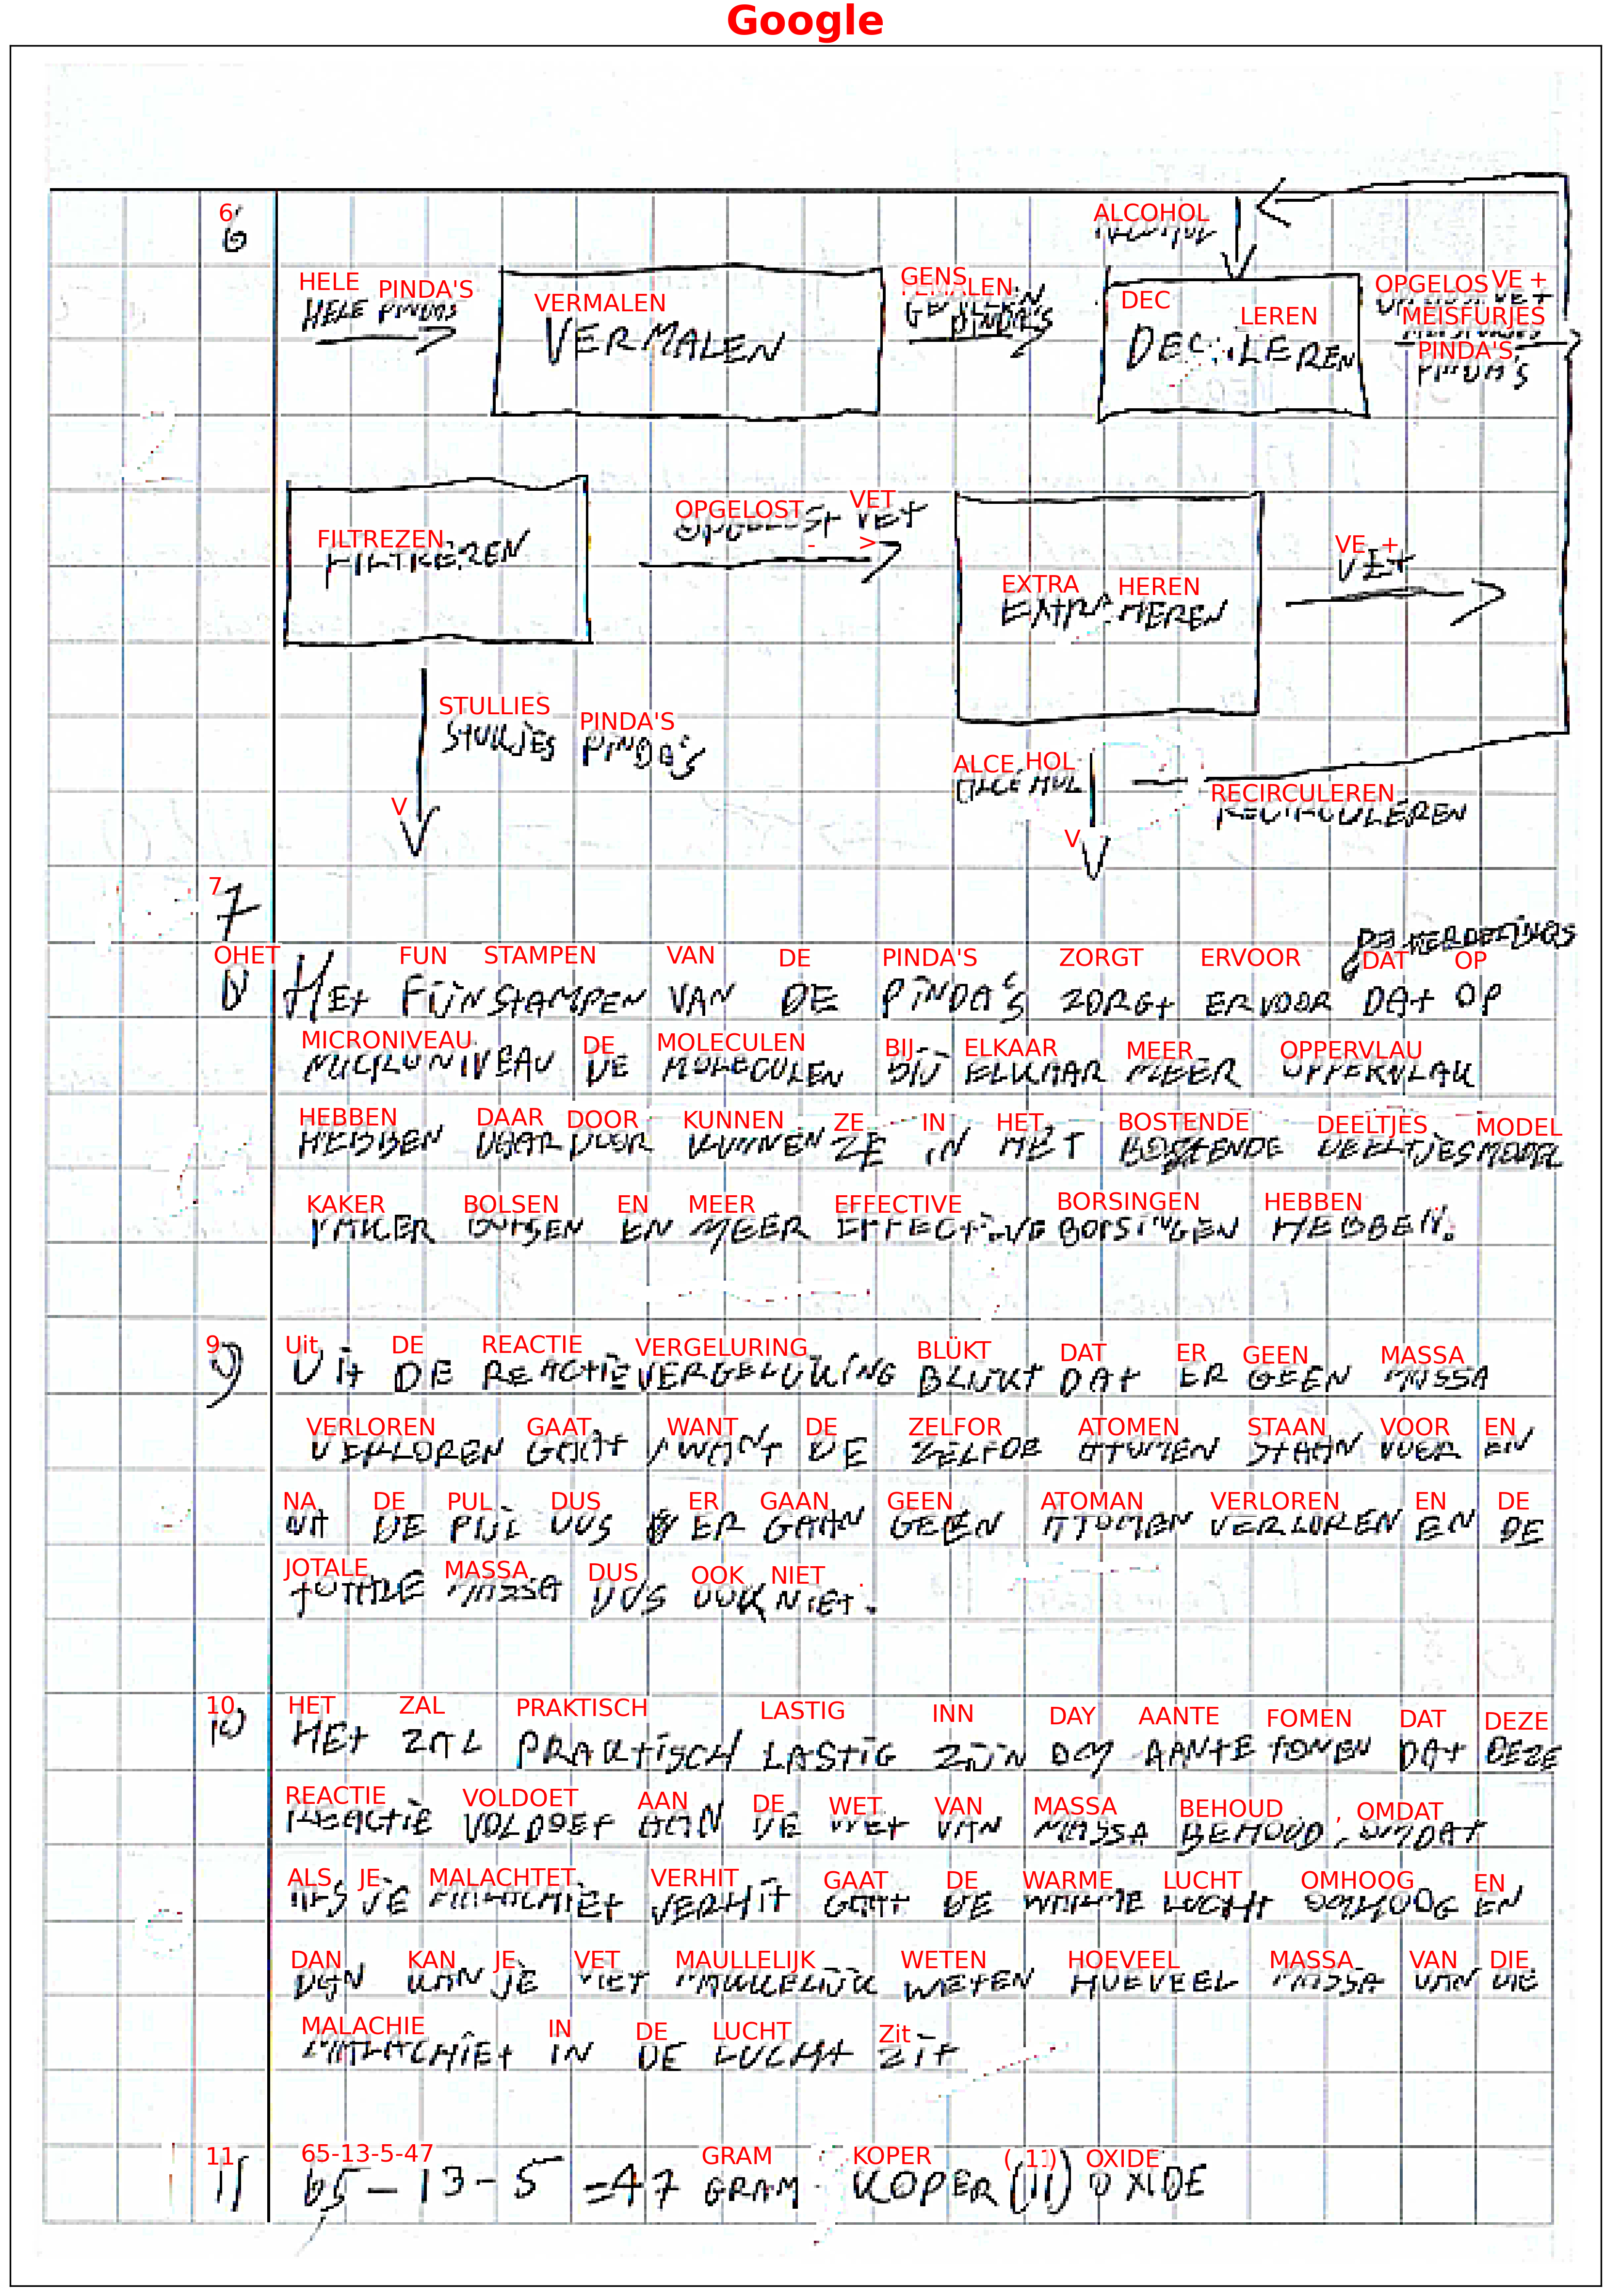 Google
6
6
ALCOHOL
ALCOHOL
HELE PINDA'S
HELE PINDAS
VERMALEN
VERMALEN
GENS
GEMALEN
PINDA'S
DEC LEREN
OPGELOS VE +
OPGELOST VET
MEISFURJES
PINDA'S
PINDA'S
FILTREZEN
FILTREREN
OPGELOST VET
- >
OPGELOST VET
EXTRA HEREN
EXTRAHEREN
VE +
VET
STULLIES PINDA'S
STUKJES PINDA'S
V
ALCE HOL
ALCOHOL
RECIRCULEREN
RECIRCULEREN
V
7
7
OHET FUN STAMPEN VAN DE PINDA'S ZORGT ERVOOR DAT OP
8 HET FIJNSTAMPEN VAN DE PINDA'S ZORGT ERVOOR DAT OP
MICRONIVEAU DE MOLECULEN BIJ- ELKAAR MEER OPPERVLAU
MICRONIVEAU DE MOLECULEN BIJ ELKAAR MEER OPPERVLAK
HEBBEN DAAR DOOR KUNNEN ZE IN HET BOSTENDE DEELTJES MODEL
HEBBEN DAARDOOR KUNNEN ZE IN HET BOTSENDE DEELTJESMODEL
KAKER BOLSEN EN MEER EFFECTIVE BORSINGEN HEBBEN
VAKER BOTSEN EN MEER EFFECTIEVE BOTSINGEN HEBBEN.
9 Uit DE REACTIE VERGELURING BLÜKT DAT ER GEEN MASSA
9 UIT DE REACTIEVERGELIJKING BLIJKT DAT ER GEEN MASSA
VERLOREN GAAT WANT DE ZELFOR ATOMEN STAAN VOOR EN
VERLOREN GAAT, WANT DE ZELFDE ATOMEN STAAN VOOR EN
NA DE PUL DUS ER GAAN GEEN ATOMAN VERLOREN EN DE
NA DE PIJL DUS ER GAAN GEEN ATOMEN VERLOREN EN DE
JOTALE MASSA DUS OOK NIET .
TOTALE MASSA DUS OOK NIET.
10 HET ZAL PRAKTISCH LASTIG INN DAY AANTE FOMEN DAT DEZE
10 HET ZAL PRAKTISCH LASTIG ZIJN OM AANTE TONEN DAT DEZE
REACTIE VOLDOET AAN DE WET VAN MASSA BEHOUD , OMDAT
REACTIE VOLDOET AAN DE WET VAN MASSA BEHOUD, OMDAT
ALS JE MALACHTET VERHIT GAAT DE WARME LUCHT OMHOOG EN
ALS JE MALACHIET VERHIT GAAT DE WARME LUCHT OMHOOG EN
DAN KAN JE VET MAULLELIJK WETEN HOEVEEL MASSA VAN DIE
DAN KAN JE NIET MAKKELIJK WETEN HOEVEEL MASSA VAN DIE
MALACHIE IN DE LUCHT Zit
MALACHIET IN DE LUCHT ZIT
11 65-13-5-47 GRAM KOPER (11) OXIDE
11 65 - 13 - 5 = 47 GRAM KOPER (II) OXIDE